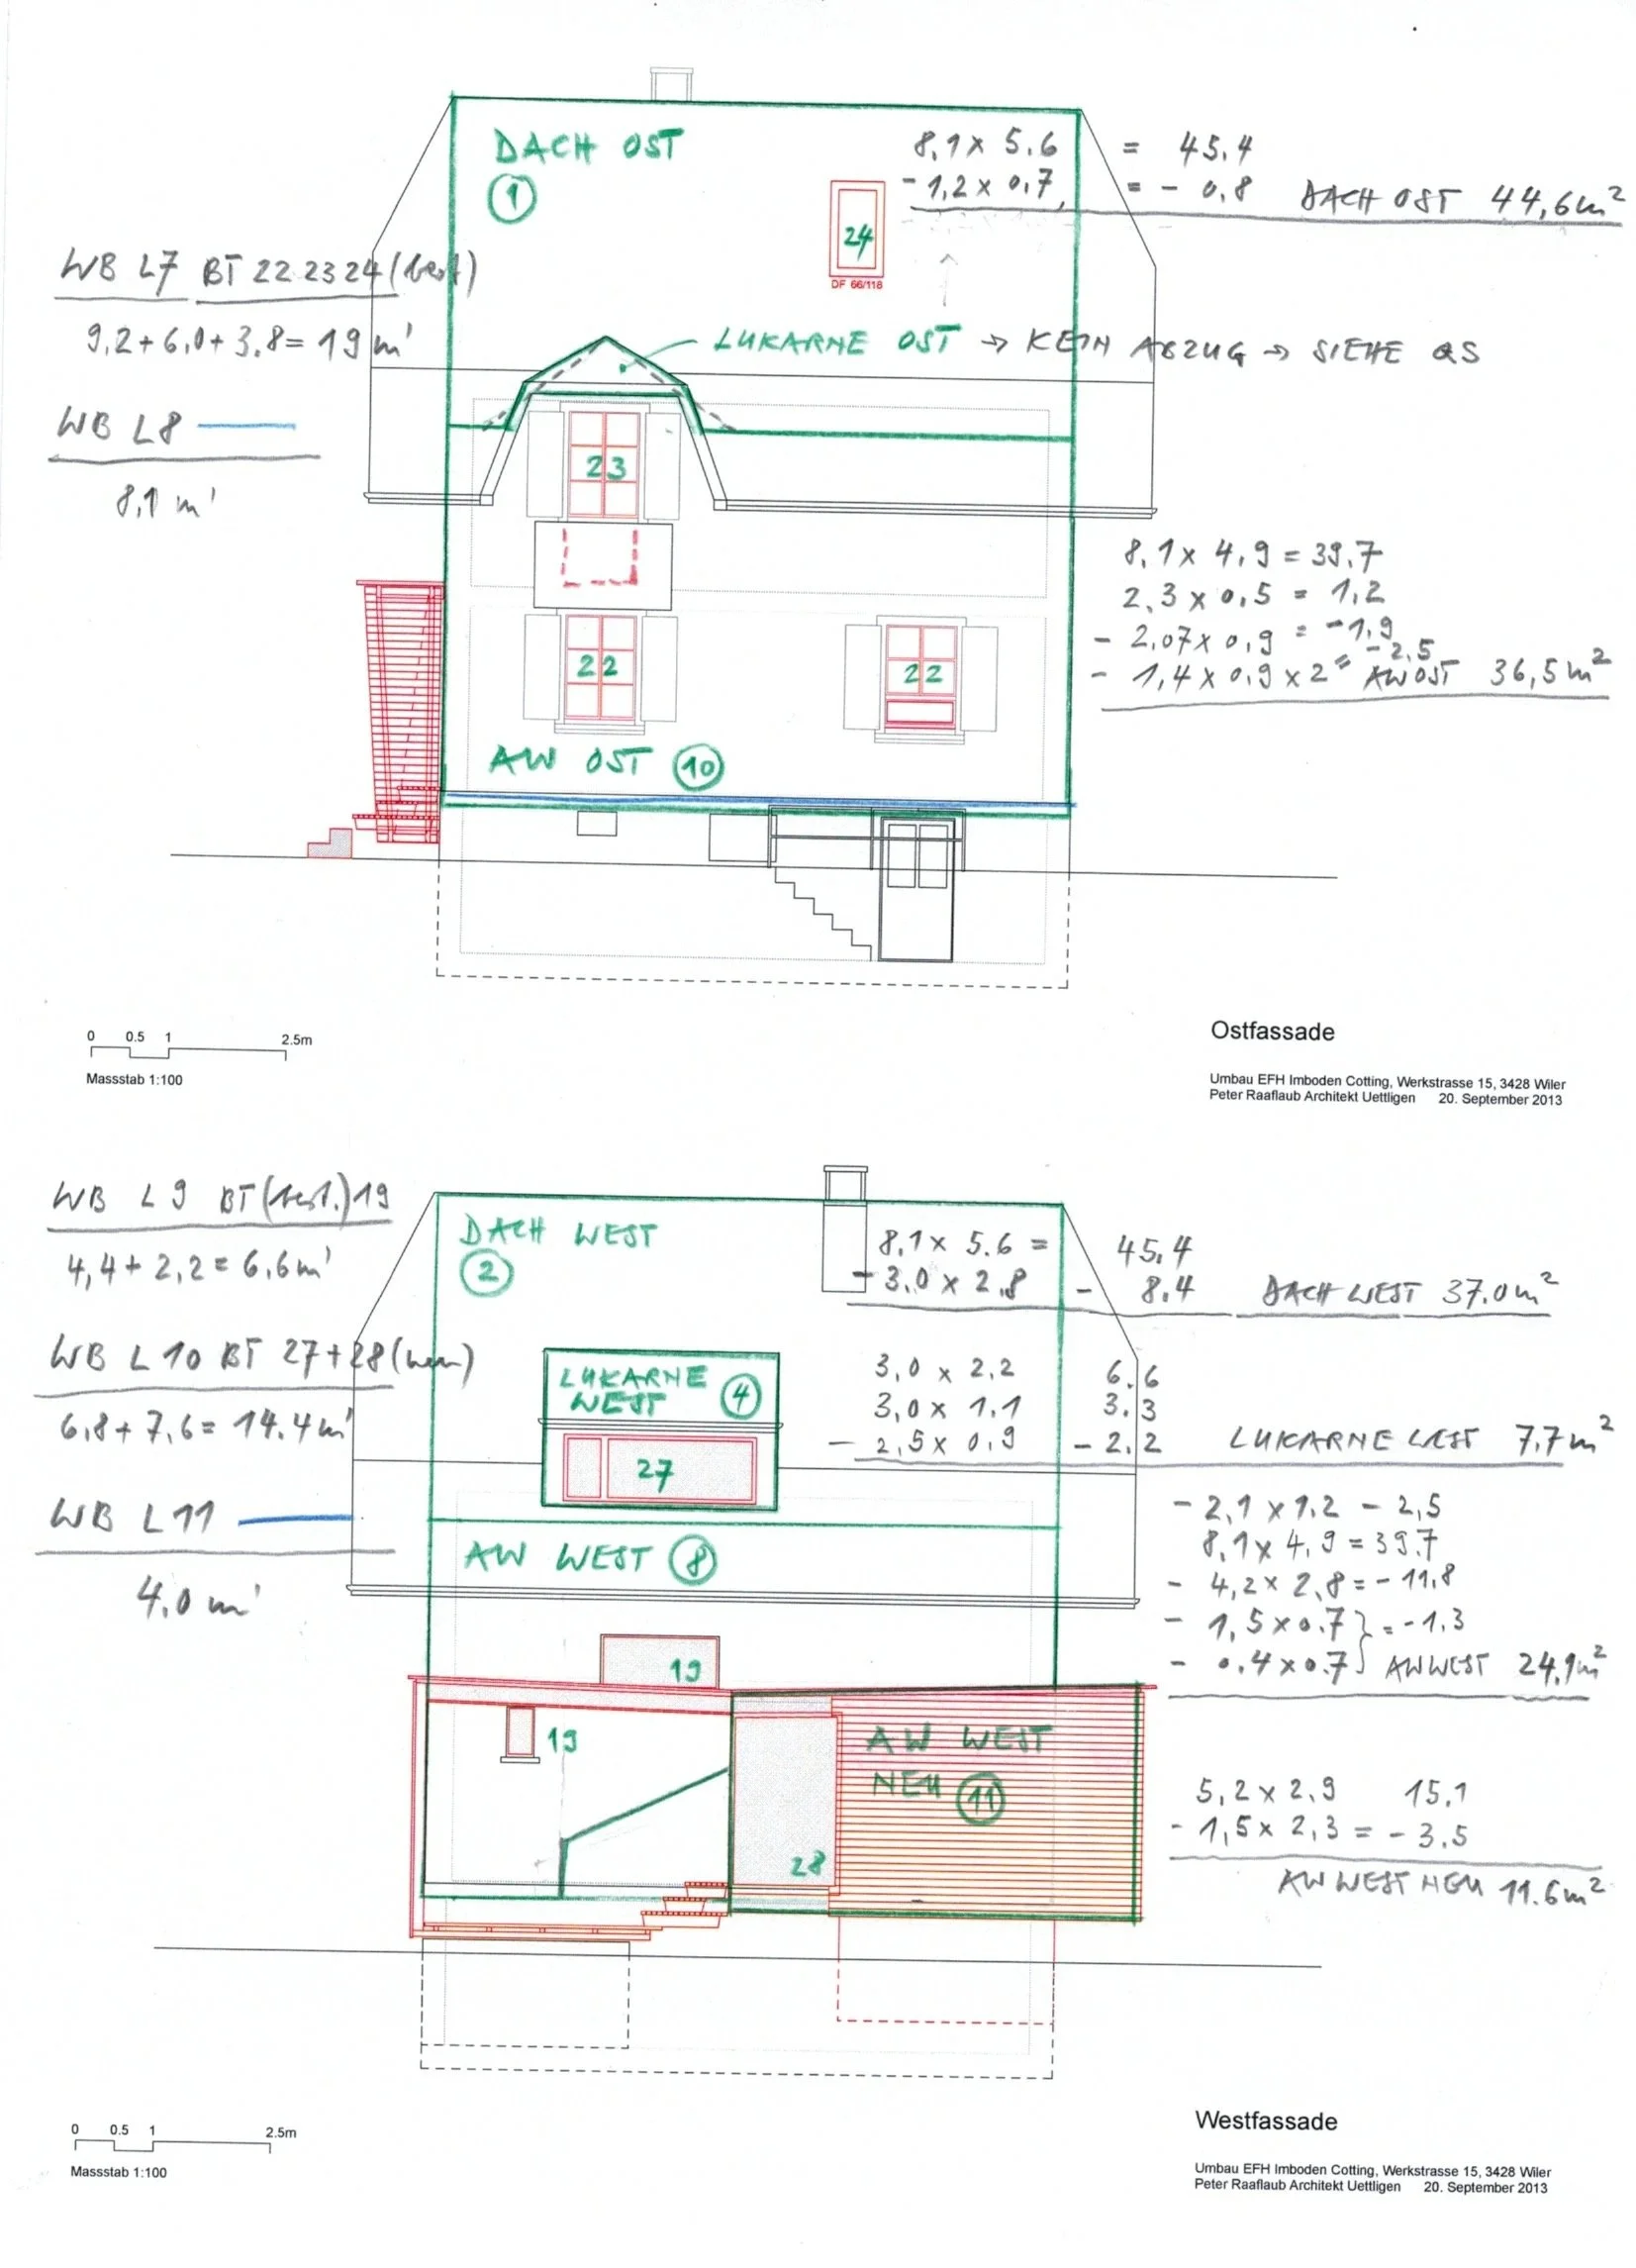 DACH OST
1
8,1 x 5.6 = 45,4
- 1,2 x 0,7 = - 0,8 DACH OST 44,6m²
24
DF 66/118
WB L7 BT 22 23 24 (best)
9,2 + 6,0 + 3,8 = 19 m'
LUKARNE OST → KEIN ABZUG → SIEHE QS
WB L8
8,1 m'
23
8,1 x 4,9 = 39,7
2,3 x 0,5 = 1,2
- 2,07 x 0,9 = -1,9
- 1,4 x 0,9 x 2 = -2,5 AW OST 36,5m²
22
22
AW OST 10
0 0.5 1 2.5m
Massstab 1:100
Ostfassade
Umbau EFH Imboden Cotting, Werkstrasse 15, 3428 Wiler
Peter Raaflaub Architekt Uettligen 20. September 2013
WB L9 BT (best.) 19
4,4 + 2,2 = 6,6 m'
DACH WEST
2
8,1 x 5.6 = 45,4
- 3,0 x 2,8 - 8.4 DACH WEST 37.0m²
WB L10 BT 27+28 (neu)
6,8 + 7,6 = 14.4 m'
LUKARNE
WEST 4
3,0 x 2,2 6.6
3,0 x 1.1 3.3
- 2,5 x 0,9 - 2.2 LUKARNE WEST 7,7m²
27
WB L11
4.0 m'
AW WEST 8
- 2,1 x 1.2 - 2,5
8,1 x 4,9 = 39.7
- 4,2 x 2,8 = - 11,8
- 1,5 x 0.7 } = -1.3
- 0.4 x 0.7 } AW WEST 24.1m²
19
19
AW WEST
NEU 11
28
5,2 x 2,9 15,1
- 1,5 x 2,3 = - 3.5
AW WEST NEU 11.6m²
0 0.5 1 2.5m
Massstab 1:100
Westfassade
Umbau EFH Imboden Cotting, Werkstrasse 15, 3428 Wiler
Peter Raaflaub Architekt Uettligen 20. September 2013